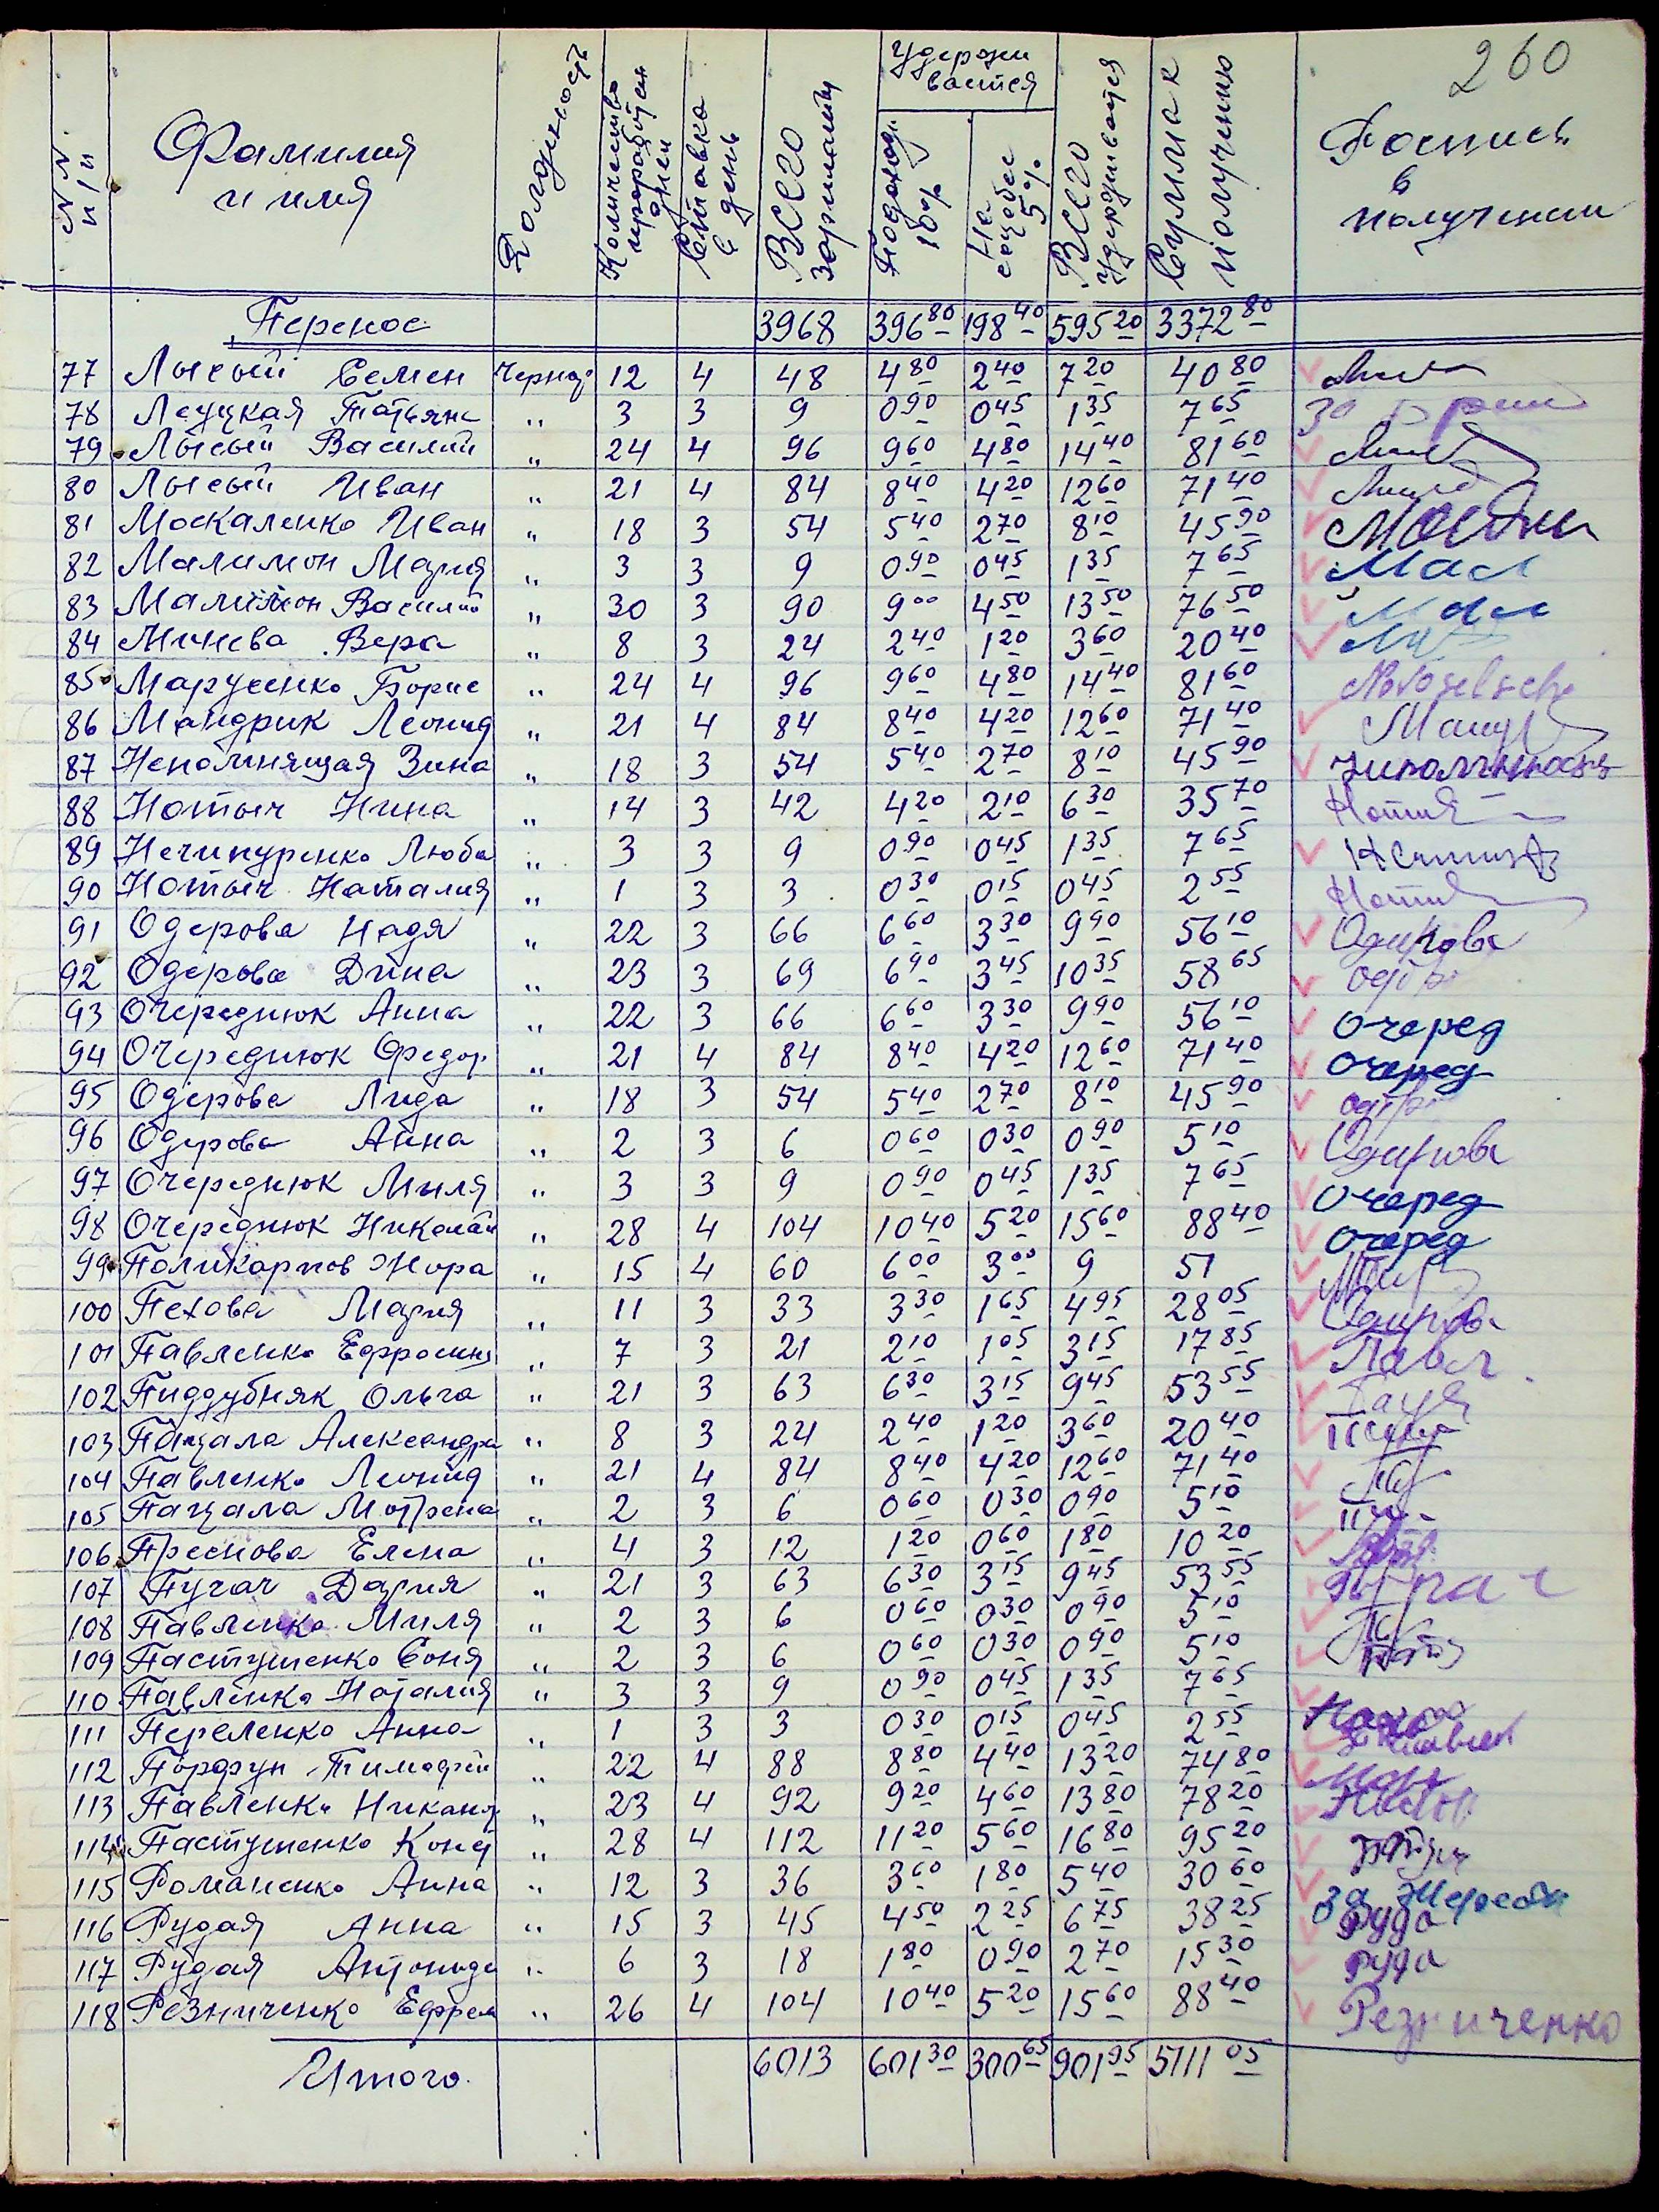 260
N N п/п Фамилия и имя Должность Количество проработан дней Ставка в день Всего зарплаты Удерживается Подоход. 10% На соцобес 5% Всего удерживается Сумма к получению Роспись в получении
Перенос 3968 396 80 198 40 595 20 3372 80
77 Лысый Семен Чернор 12 4 48 4 80 2 40 7 20 40 80
78 Леуцкая Татьяна " 3 3 9 0 90 0 45 1 35 7 65 За
79 Лысый Василий " 24 4 96 9 60 4 80 14 40 81 60
80 Лысый Иван " 21 4 84 8 40 4 20 12 60 71 40
81 Москаленко Иван " 18 3 54 5 40 2 70 8 10 45 90
82 Малимон Мария " 3 3 9 0 90 0 45 1 35 7 65 Мал
83 Малимон Василий " 30 3 90 9 00 4 50 13 50 76 50 Мал
84 Минева Вера " 8 3 24 2 40 1 20 3 60 20 40
85 Марусенко Борис " 24 4 96 9 60 4 80 14 40 81 60
86 Мандрик Леонид " 21 4 84 8 40 4 20 12 60 71 40
87 Непомнящая Зина " 18 3 54 5 40 2 70 8 10 45 90
88 Нотыч Нина " 14 3 42 4 20 2 10 6 30 35 70
89 Нечипуренко Люба " 3 3 9 0 90 0 45 1 35 7 65
90 Нотыч Наталия " 1 3 3 0 30 0 15 0 45 2 55
91 Одерова Надя " 22 3 66 6 60 3 30 9 90 56 10
92 Одерова Дина " 23 3 69 6 90 3 45 10 35 58 65
93 Очереднюк Анна " 22 3 66 6 60 3 30 9 90 56 10 Очеред
94 Очереднюк Федор " 21 4 84 8 40 4 20 12 60 71 40 Очеред
95 Одерова Лида " 18 3 54 5 40 2 70 8 10 45 90
96 Одерова Анна " 2 3 6 0 60 0 30 0 90 5 10
97 Очереднюк Миля " 3 3 9 0 90 0 45 1 35 7 65 Очеред
98 Очереднюк Николай " 28 4 104 10 40 5 20 15 60 88 40 Очеред
99 Поликарпов Жора " 15 4 60 6 00 3 00 9 51
100 Пехова Мария " 11 3 33 3 30 1 65 4 95 28 05
101 Павленко Ефросинья " 7 3 21 2 10 1 05 3 15 17 85 Павл
102 Пиддубняк Ольга " 21 3 63 6 30 3 15 9 45 53 55
103 Пацала Александра " 8 3 24 2 40 1 20 3 60 20 40
104 Павленко Леонид " 21 4 84 8 40 4 20 12 60 71 40
105 Пацала Мотрена " 2 3 6 0 60 0 30 0 90 5 10
106 Преснова Елена " 4 3 12 1 20 0 60 1 80 10 20
107 Пугач Дария " 21 3 63 6 30 3 15 9 45 53 55
108 Павленко Миля " 2 3 6 0 60 0 30 0 90 5 10
109 Пастушенко Соня " 2 3 6 0 60 0 30 0 90 5 10
110 Павленко Наталия " 3 3 9 0 90 0 45 1 35 7 65
111 Переленко Анна " 1 3 3 0 30 0 15 0 45 2 55
112 Порфун Тимофей " 22 4 88 8 80 4 40 13 20 74 80
113 Павленко Никанор " 23 4 92 9 20 4 60 13 80 78 20
114 Пастушенко Конд " 28 4 112 11 20 5 60 16 80 95 20
115 Романенко Анна " 12 3 36 3 60 1 80 5 40 30 60 за
116 Рудая Анна " 15 3 45 4 50 2 25 6 75 38 25 Руда
117 Рудая Антонида " 6 3 18 1 80 0 90 2 70 15 30 Руда
118 Резниченко Ефрем " 26 4 104 10 40 5 20 15 60 88 40 Резниченко
Итого. 6013 601 30 300 65 901 95 5111 05